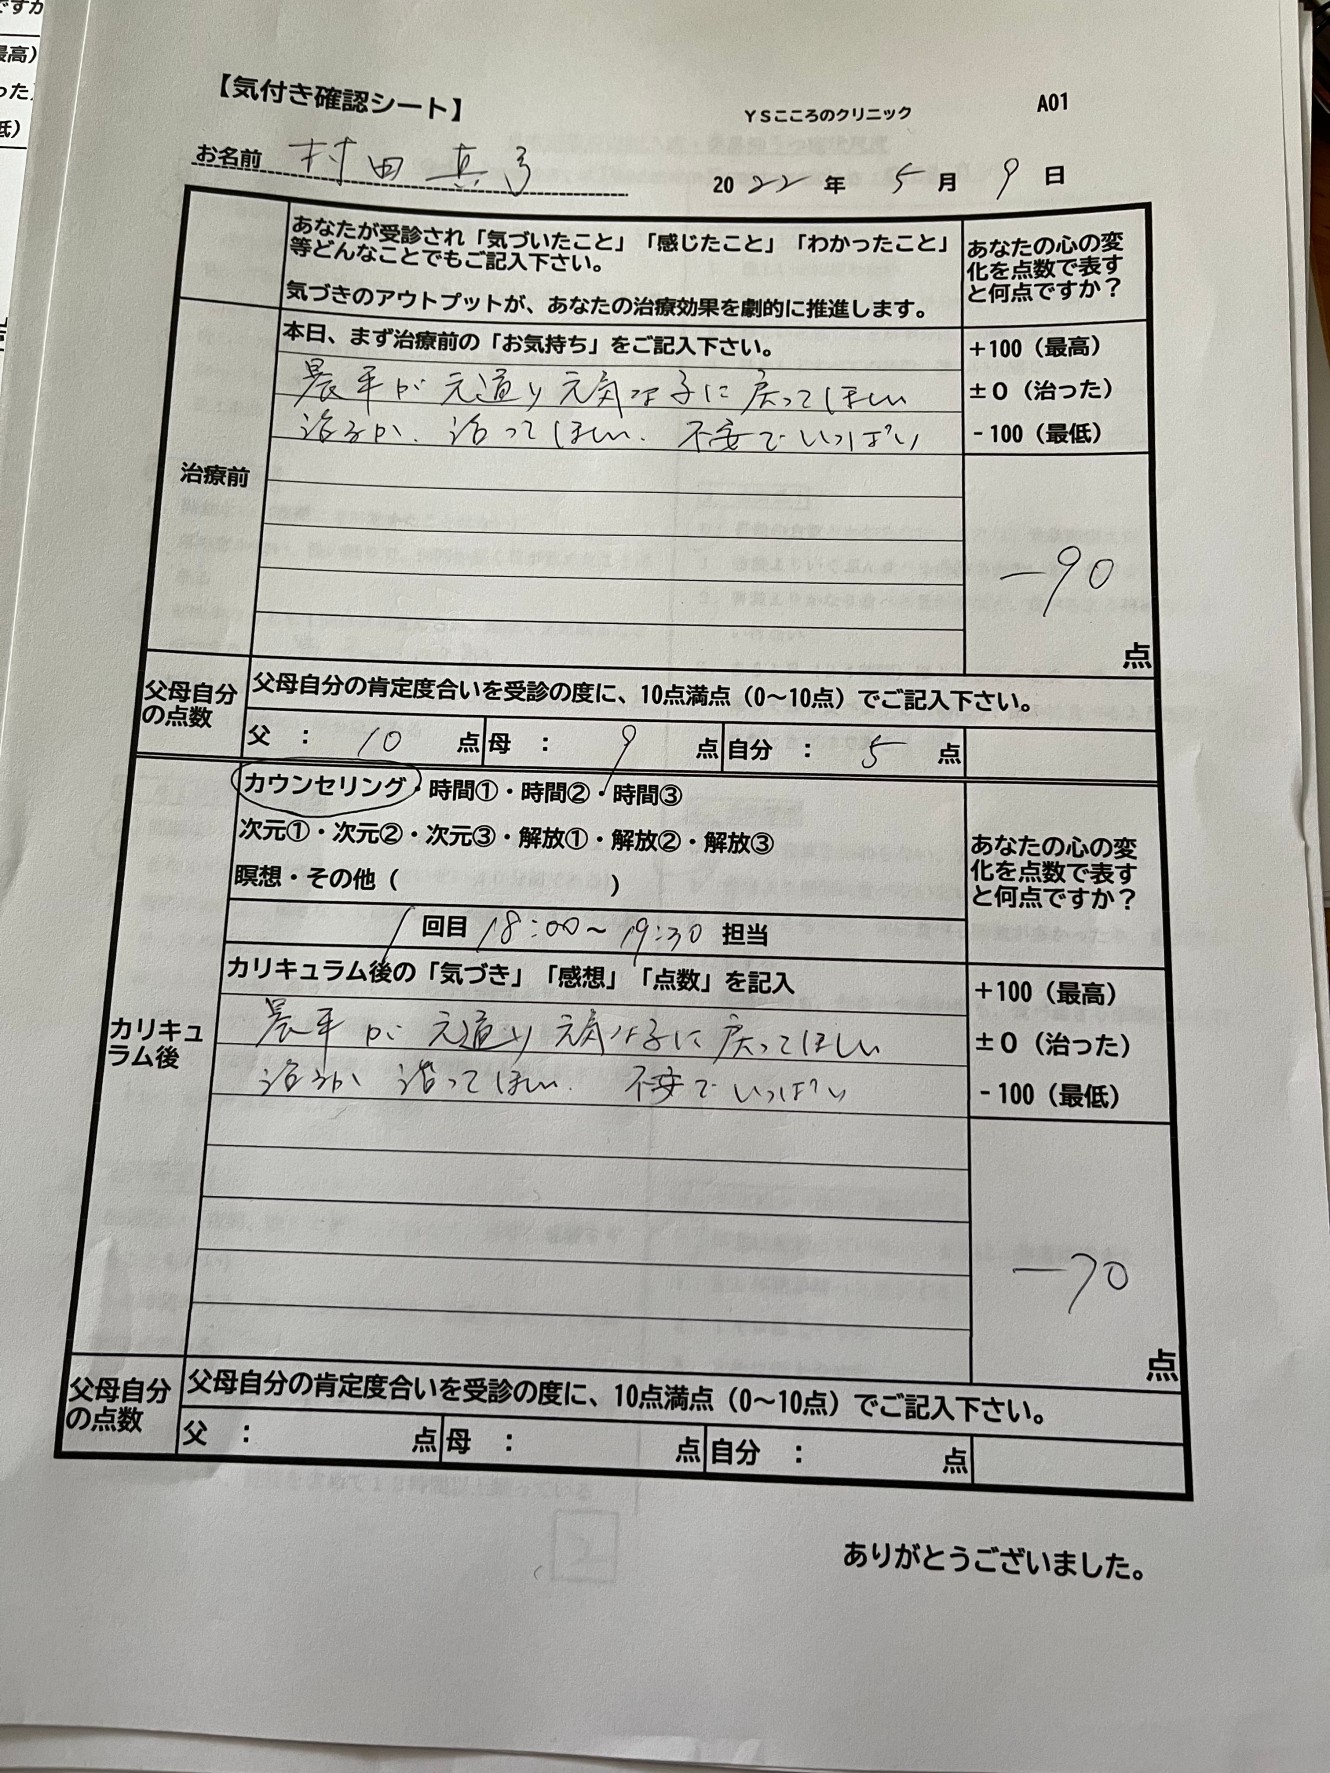 ですか
最高）
った）
低）
【気付き確認シート】
ＹＳこころのクリニック
A01
お名前 村田 真弓
2022年 5月 9日
あなたが受診され「気づいたこと」「感じたこと」「わかったこと」
等どんなことでもご記入下さい。
気づきのアウトプットが、あなたの治療効果を劇的に推進します。
あなたの心の変
化を点数で表す
と何点ですか？
治療前
本日、まず治療前の「お気持ち」をご記入下さい。
晨平が元通り元気な子に戻ってほしい
治るか、治ってほしい、不安でいっぱい
+100（最高）
±0（治った）
-100（最低）
-90
点
父母自分
の点数
父母自分の肯定度合いを受診の度に、10点満点（0～10点）でご記入下さい。
父 ： 10 点 母 ： 9 点 自分 ： 5 点
カウンセリング・時間①・時間②・時間③
次元①・次元②・次元③・解放①・解放②・解放③
瞑想・その他（ ）
1回目 18:00～19:30 担当
あなたの心の変
化を点数で表す
と何点ですか？
カリキュ
ラム後
カリキュラム後の「気づき」「感想」「点数」を記入
晨平が元通り元気な子に戻ってほしい
治るか 治ってほしい、不安でいっぱい
+100（最高）
±0（治った）
-100（最低）
-70
点
父母自分
の点数
父母自分の肯定度合いを受診の度に、10点満点（0～10点）でご記入下さい。
父 ： 点 母 ： 点 自分 ： 点
ありがとうございました。